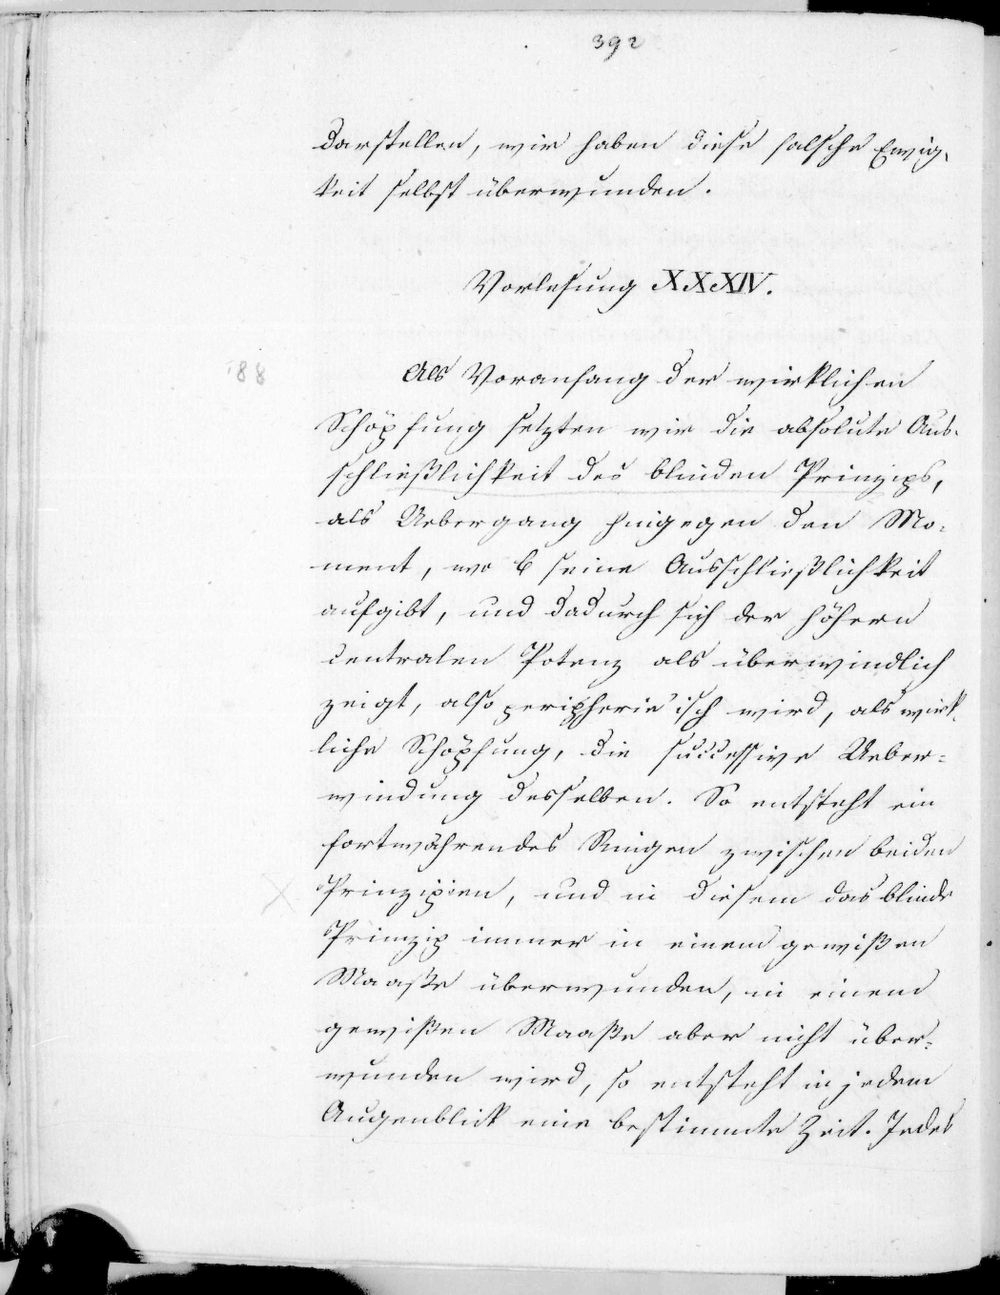 392
darstellen, wir haben diese falsche Ewig-
keit selbst überwunden.
Vorlesung XXXIV.
188
Als Voranfang der wirklichen
Schöpfung setzten wir die absolute Aus-
schließlichkeit des blinden Prinzips,
als Uebergang hingegen den Mo-
ment, wo B seine Ausschließlichkeit
aufgibt, und dadurch sich der höhern
centralen Potenz als überwindlich
zeigt, also peripherie'isch wird, als wirk-
liche Schöpfung, die successive Ueber-
windung desselben. So entsteht ein
fortwährendes Ringen zwischen beiden
Prinzipien, und in diesem das blinde
Prinzip immer in einem gewißen
Maaße überwunden, in einem
gewißen Maaße aber nicht über-
wunden wird, so entsteht in jedem
Augenblick eine bestimmte Zeit. Jedes